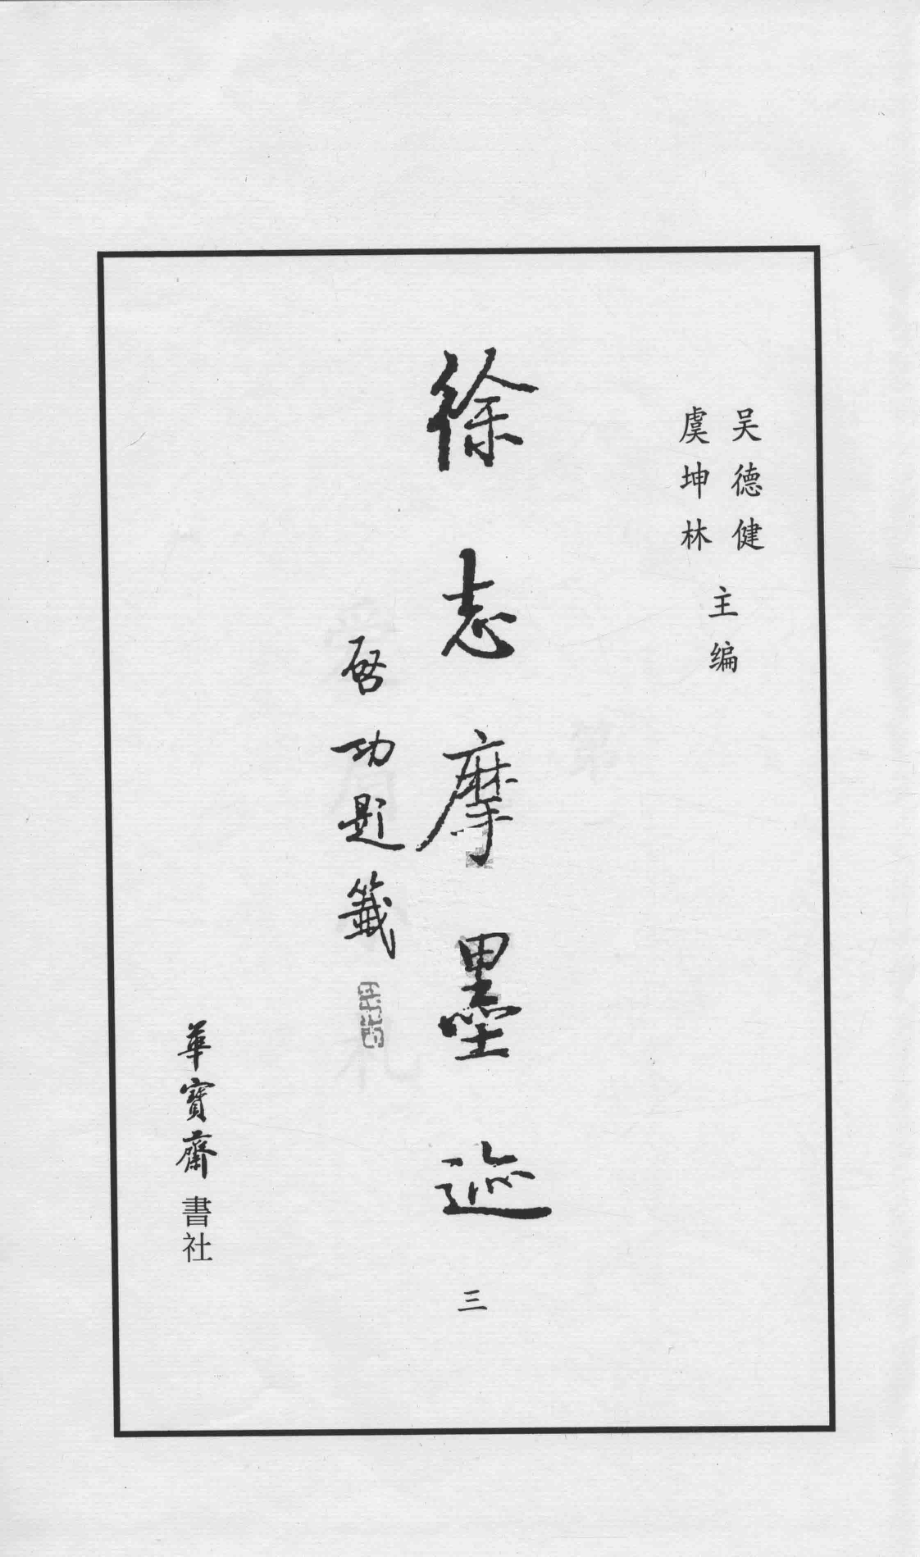 吴德健
虞坤林
主编
徐志摩墨迹
三
启功题籤
華寶齋書社